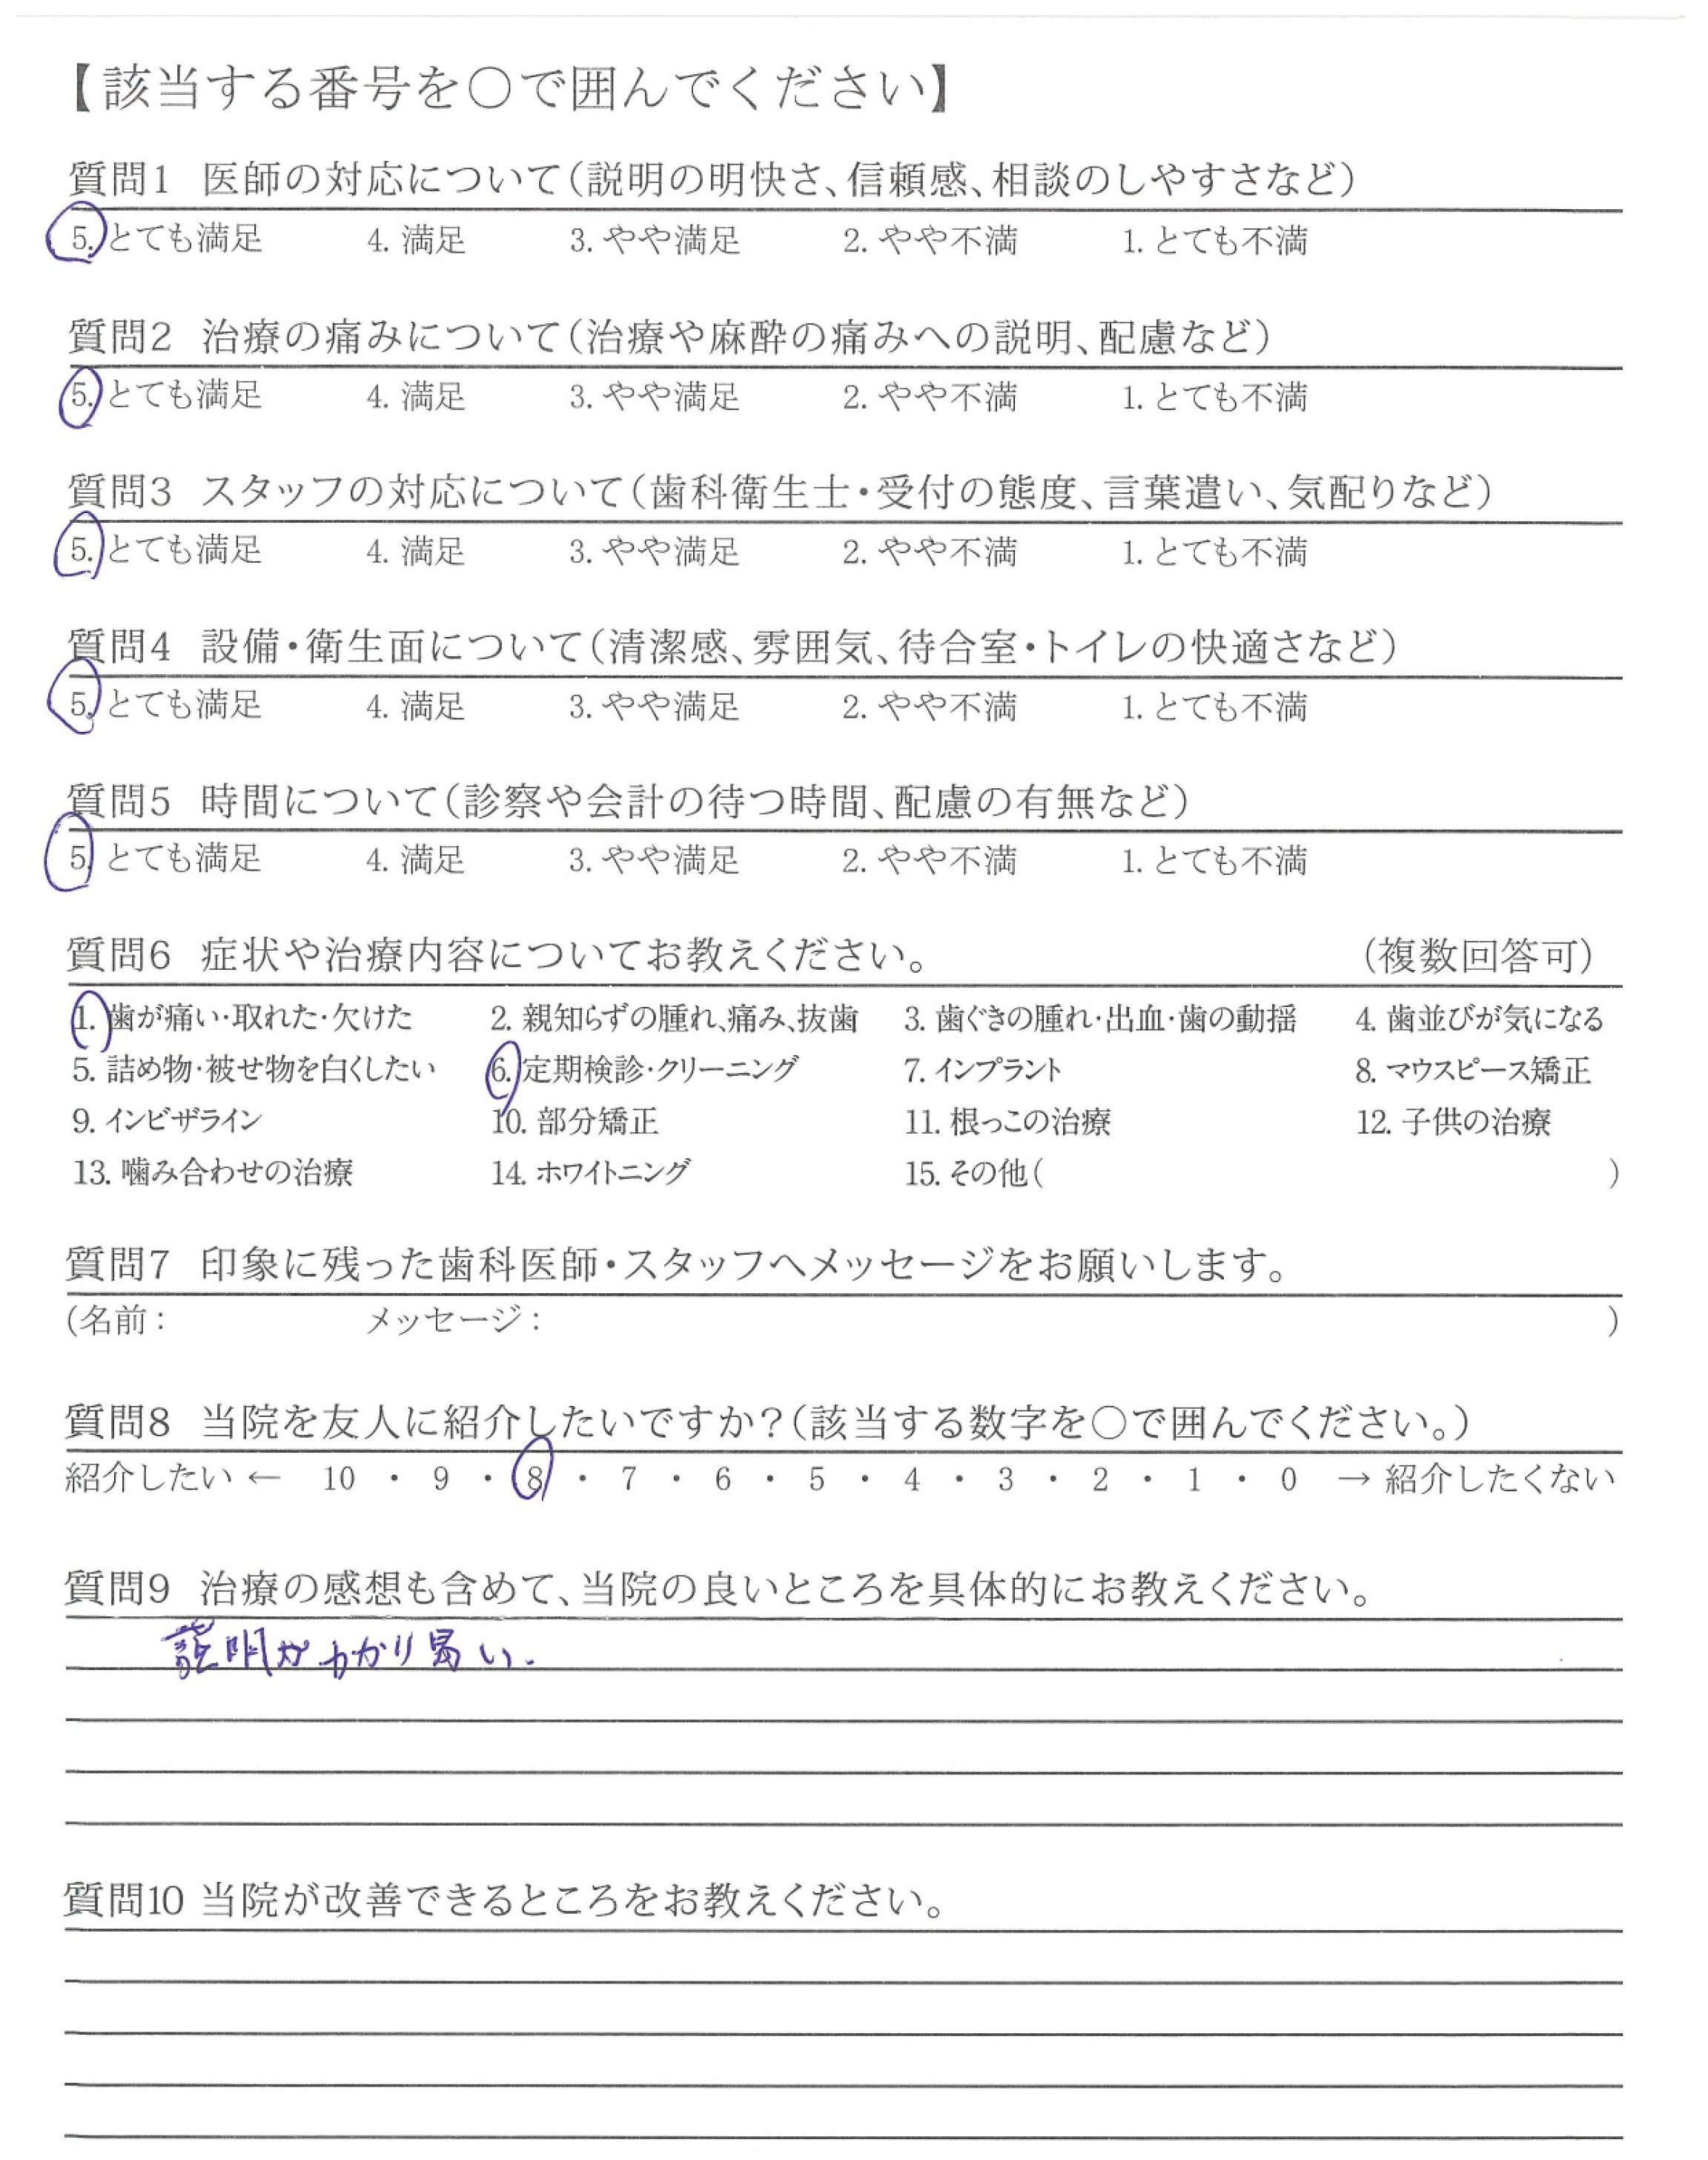 【該当する番号を○で囲んでください】
質問1 医師の対応について(説明の明快さ、信頼感、相談のしやすさなど)
5. とても満足 4. 満足 3. やや満足 2. やや不満 1. とても不満
質問2 治療の痛みについて(治療や麻酔の痛みへの説明、配慮など)
5. とても満足 4. 満足 3. やや満足 2. やや不満 1. とても不満
質問3 スタッフの対応について(歯科衛生士・受付の態度、言葉遣い、気配りなど)
5. とても満足 4. 満足 3. やや満足 2. やや不満 1. とても不満
質問4 設備・衛生面について(清潔感、雰囲気、待合室・トイレの快適さなど)
5. とても満足 4. 満足 3. やや満足 2. やや不満 1. とても不満
質問5 時間について(診察や会計の待つ時間、配慮の有無など)
5. とても満足 4. 満足 3. やや満足 2. やや不満 1. とても不満
質問6 症状や治療内容についてお教えください。 (複数回答可)
1. 歯が痛い・取れた・欠けた 2. 親知らずの腫れ、痛み、抜歯 3. 歯ぐきの腫れ・出血・歯の動揺 4. 歯並びが気になる
5. 詰め物・被せ物を白くしたい 6. 定期検診・クリーニング 7. インプラント 8. マウスピース矯正
9. インビザライン 10. 部分矯正 11. 根っこの治療 12. 子供の治療
13. 噛み合わせの治療 14. ホワイトニング 15. その他( )
質問7 印象に残った歯科医師・スタッフへメッセージをお願いします。
(名前: メッセージ: )
質問8 当院を友人に紹介したいですか?(該当する数字を○で囲んでください。)
紹介したい ← 10 ・ 9 ・ 8 ・ 7 ・ 6 ・ 5 ・ 4 ・ 3 ・ 2 ・ 1 ・ 0 → 紹介したくない
質問9 治療の感想も含めて、当院の良いところを具体的にお教えください。
説明がわかり易い.
質問10 当院が改善できるところをお教えください。